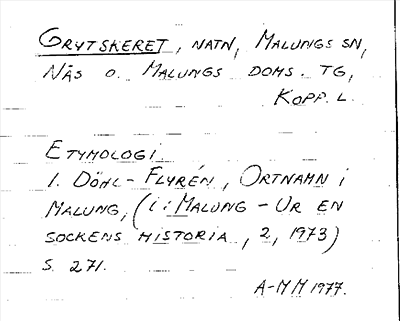 GRYTSKERET, NATN, MALUNGS SN,
NÄS O. MALUNGS DOMS. TG,
KOPP. L.
ETYMOLOGI.
I. DÖHL-FLYRÉN, ORTNAMN I
MALUNG, (i: MALUNG - UR EN
SOCKENS HISTORIA, 2, 1973)
S. 271.
A-MM 1977.